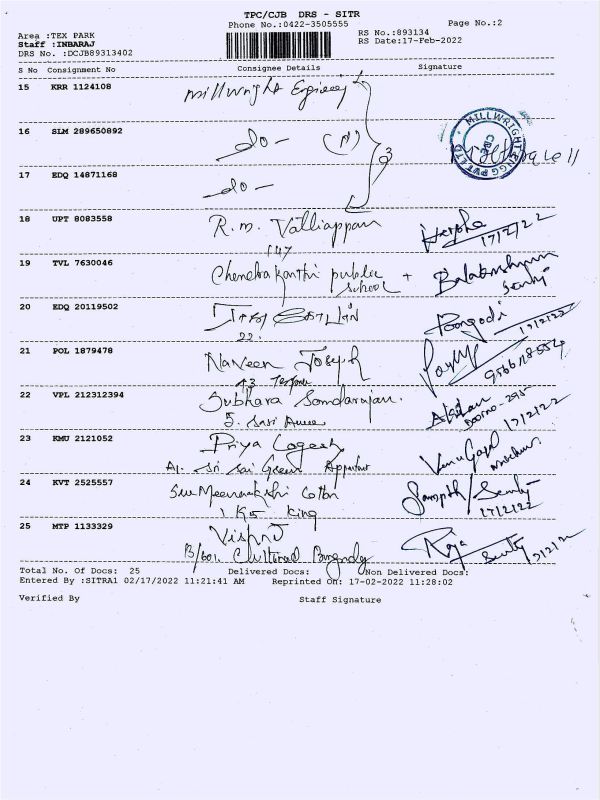 TPC/CJB DRS - SITR
Phone No.:0422-3505555
Page No.:2
Area :TEX PARK
Staff :INBARAJ
DRS No. :DCJB89313402
RS No.:893134
RS Date:17-Feb-2022
S No Consignment No Consignee Details Signature
15 KRR 1124108 Millwright
16 SLM 289650892 do - (N)
MILLWRIGHT ENGG PVT LTD
CBE
17 EDQ 14871168 do -
18 UPT 8083558 R.m. Valliappan
147 17/2/22
19 TVL 7630046 Chendrakanthi public school +
20 EDQ 20119502
22. Poongodi 17/2/22
21 POL 1879478 Naveen Joseph
22 VPL 212312394 Subhara Somdarajan.
5. Door no - 295 17/2/22
23 KMU 2121052 Priya Logesh
A1. Sri Sai Green VenuGopal
24 KVT 2525557 Sree Meenakshi Cotton Sampath /
1 K5 King 17/2/22
25 MTP 1133329 Raja
B/601,
Total No. Of Docs: 25 Delivered Docs: Non Delivered Docs:
Entered By :SITRA1 02/17/2022 11:21:41 AM Reprinted On: 17-02-2022 11:28:02
Verified By Staff Signature